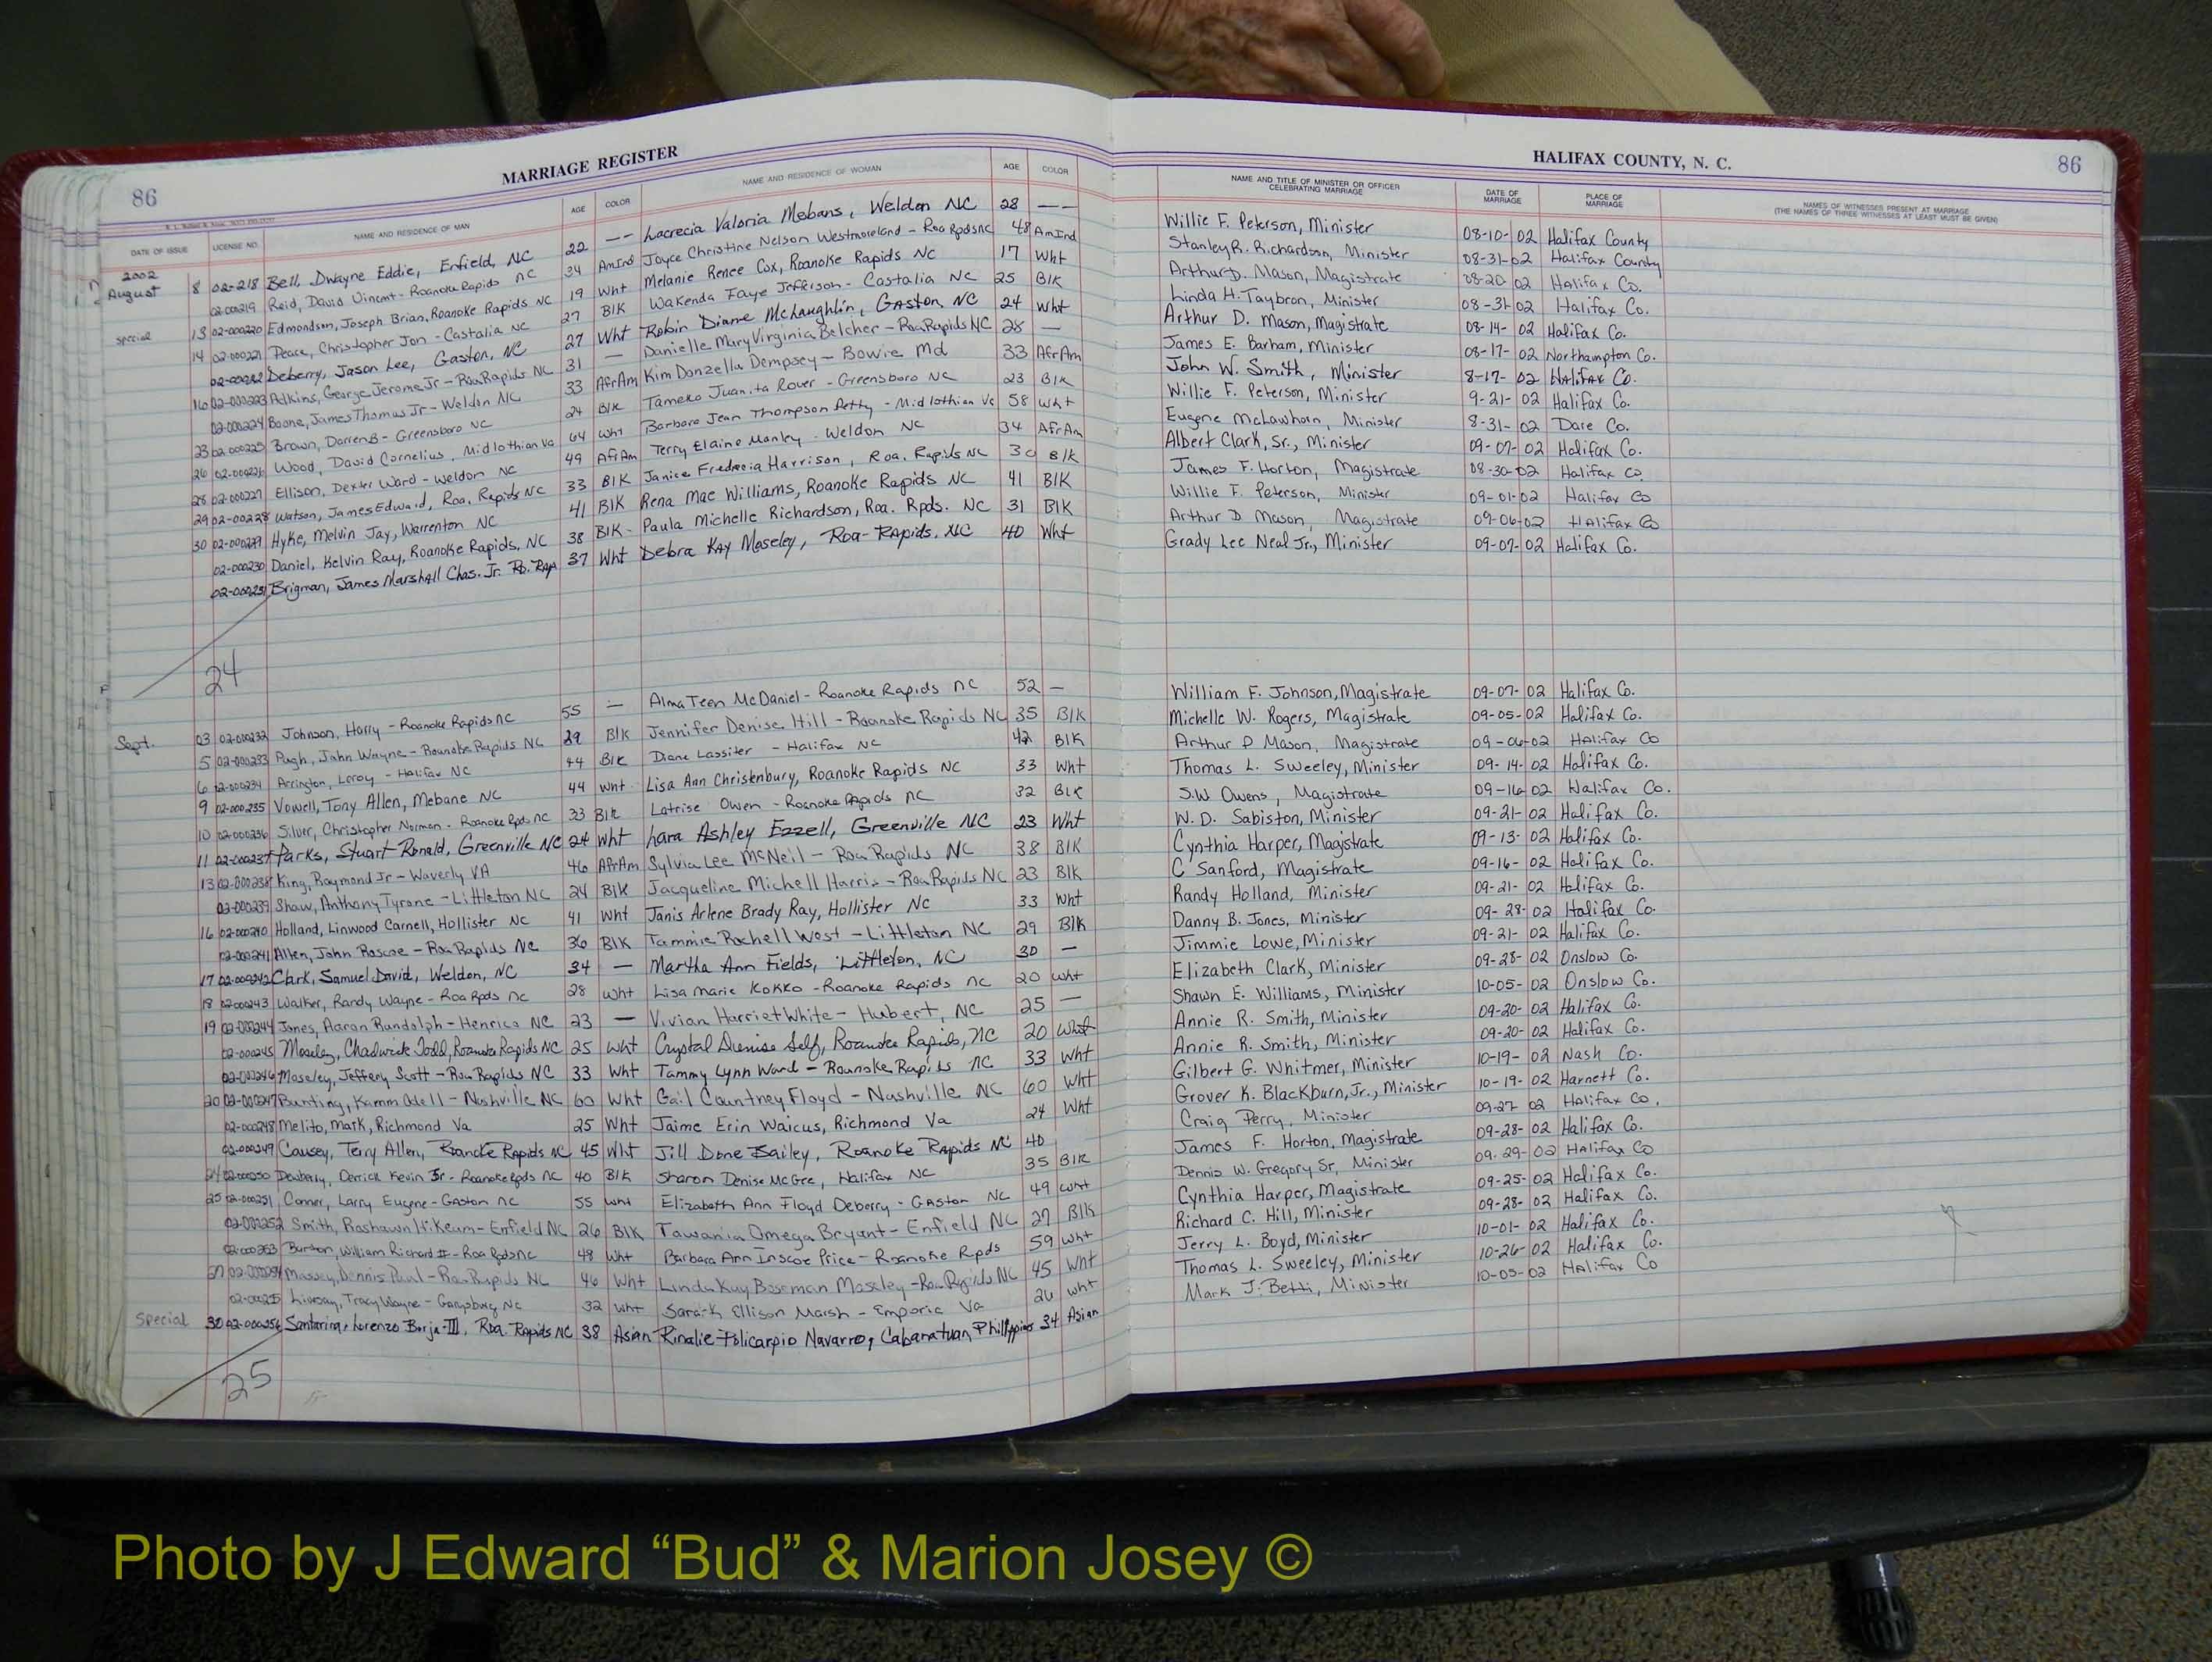 86 MARRIAGE REGISTER HALIFAX COUNTY, N. C. 86
DATE OF ISSUE LICENSE NO. NAME AND RESIDENCE OF MAN AGE COLOR NAME AND RESIDENCE OF WOMAN AGE COLOR NAME AND TITLE OF MINISTER OR OFFICER CELEBRATING MARRIAGE DATE OF MARRIAGE PLACE OF MARRIAGE NAMES OF WITNESSES PRESENT AT MARRIAGE (THE NAMES OF THREE WITNESSES AT LEAST MUST BE GIVEN)
2002
August 8 02-218 Bell, Dwayne Eddie, Enfield, NC 22 -- Lacrecia Valoria Mebans, Weldon NC 28 -- Willie F. Peterson, Minister 08-10-02 Halifax County
02-00219 Reid, David Vincent - Roanoke Rapids NC 34 AmInd Joyce Christine Nelson Westmoreland - Roa Rpds NC 48 AmInd Stanley R. Richardson, Minister 08-31-02 Halifax County
special 13 02-000220 Edmondson, Joseph Brian, Roanoke Rapids NC 19 Wht Melanie Renee Cox, Roanoke Rapids NC 17 Wht Arthur D. Mason, Magistrate 08-20-02 Halifax Co.
14 02-000221 Peace, Christopher Jon - Castalia NC 27 Blk Wakenda Faye Jefferson - Castalia NC 25 Blk Linda H. Taybron, Minister 08-31-02 Halifax Co.
02-00222 Deberry, Jason Lee, Gaston, NC 27 Wht Robin Diane McLaughlin, Gaston, NC 24 Wht Arthur D. Mason, Magistrate 08-14-02 Halifax Co.
16 02-000223 Adkins, George Jerome Jr - Roa Rapids NC 31 — Danielle Mary Virginia Belcher - Roa Rapids NC 28 — James E. Barham, Minister 08-17-02 Northampton Co.
02-000224 Boone, James Thomas Jr - Weldon NC 33 AfrAm Kim Donzella Dempsey - Bowie Md 33 AfrAm John W. Smith, Minister 8-17-02 Halifax Co.
23 02-000225 Brown, Darren B - Greensboro NC 24 Blk Tameko Juanita Rover - Greensboro NC 23 Blk Willie F. Peterson, Minister 9-21-02 Halifax Co.
26 02-000226 Wood, David Cornelius, Midlothian Va 64 Wht Barbara Jean Thompson Petty - Midlothian Va 58 Wht Eugene McLawhorn, Minister 8-31-02 Dare Co.
28 02-000227 Ellison, Dexter Ward - Weldon NC 49 AfrAm Terry Elaine Manley - Weldon NC 34 AfrAm Albert Clark, Sr., Minister 09-07-02 Halifax Co.
29 02-00228 Watson, James Edward, Roa. Rapids NC 33 Blk Janice Fredrecia Harrison, Roa. Rapids NC 30 Blk James F. Horton, Magistrate 08-30-02 Halifax Co
30 02-000229 Hyke, Melvin Jay, Warrenton NC 41 Blk Rena Mae Williams, Roanoke Rapids NC 41 Blk Willie F. Peterson, Minister 09-01-02 Halifax Co
02-000230 Daniel, Kelvin Ray, Roanoke Rapids, NC 38 Blk Paula Michelle Richardson, Roa. Rpds. NC 31 Blk Arthur D Mason, Magistrate 09-06-02 Halifax Co
02-000231 Brigman, James Marshall Chas. Jr. Ro. Rap 37 Wht Debra Kay Moseley, Roa-Rapids, NC 40 Wht Grady Lee Neal Jr., Minister 09-07-02 Halifax Co.
24
Sept. 03 02-000232 Johnson, Harry - Roanoke Rapids NC 55 — Alma Teen McDaniel - Roanoke Rapids NC 52 — William F. Johnson, Magistrate 09-07-02 Halifax Co.
5 02-000233 Pugh, John Wayne - Roanoke Rapids NC 29 Blk Jennifer Denise Hill - Roanoke Rapids NC 35 Blk Michelle W. Rogers, Magistrate 09-05-02 Halifax Co.
6 02-000234 Arrington, Leroy - Halifax NC 44 Blk Diane Lassiter - Halifax NC 42 Blk Arthur D Mason, Magistrate 09-06-02 Halifax Co
9 02-000235 Vowell, Tony Allen, Mebane NC 44 Wht Lisa Ann Christenbury, Roanoke Rapids NC 33 Wht Thomas L. Sweeley, Minister 09-14-02 Halifax Co.
10 02-000236 Silver, Christopher Norman - Roanoke Rpds NC 33 Blk Latrise Owen - Roanoke Rapids NC 32 Blk S.W Owens, Magistrate 09-16-02 Halifax Co.
11 02-000237 Parks, Stuart Ronald, Greenville NC 24 Wht Lara Ashley Ezzell, Greenville NC 23 Wht W. D. Sabiston, Minister 09-21-02 Halifax Co.
13 02-000238 King, Raymond Jr - Waverly VA 46 AfrAm Sylvia Lee McNeil - Roa Rapids NC 38 Blk Cynthia Harper, Magistrate 09-13-02 Halifax Co.
02-000239 Shaw, Anthony Tyrone - Littleton NC 24 Blk Jacqueline Michell Harris - Roa Rapids NC 23 Blk C Sanford, Magistrate 09-16-02 Halifax Co.
16 02-000240 Holland, Linwood Carnell, Hollister NC 41 Wht Janis Arlene Brady Ray, Hollister NC 33 Wht Randy Holland, Minister 09-21-02 Halifax Co.
02-000241 Allen, John Roscoe - Roa Rapids NC 36 Blk Tammie Rochell West - Littleton NC 29 Blk Danny B. Jones, Minister 09-28-02 Halifax Co.
17 02-000242 Clark, Samuel David, Weldon, NC 34 — Martha Ann Fields, Littleton, NC 30 — Jimmie Lowe, Minister 09-21-02 Halifax Co.
18 02-000243 Walker, Randy Wayne - Roa Rpds NC 28 Wht Lisa Marie Kokko - Roanoke Rapids NC 20 Wht Elizabeth Clark, Minister 09-28-02 Onslow Co.
19 02-000244 Jones, Aaron Randolph - Henrico NC 23 — Vivian Harriet White - Hubert, NC 25 — Shawn E. Williams, Minister 10-05-02 Onslow Co.
02-000245 Moseley, Chadwick Todd, Roanoke Rapids NC 25 Wht Crystal Denise Self, Roanoke Rapids, NC 20 Wht Annie R. Smith, Minister 09-20-02 Halifax Co.
02-000246 Moseley, Jeffery Scott - Roa Rapids NC 33 Wht Tammy Lynn Ward - Roanoke Rapids NC 33 Wht Annie R. Smith, Minister 09-20-02 Halifax Co.
20 02-000247 Bunting, Kamm Odell - Nashville NC 60 Wht Gail Countney Floyd - Nashville NC 60 Wht Gilbert G. Whitmer, Minister 10-19-02 Nash Co.
02-000248 Melito, Mark, Richmond Va 25 Wht Jaime Erin Waicus, Richmond Va 24 Wht Grover K. Blackburn, Jr., Minister 10-19-02 Harnett Co.
02-000249 Causey, Terry Allen, Roanoke Rapids NC 45 Wht Jill Done Bailey, Roanoke Rapids NC 40 Craig Perry, Minister 09-27 02 Halifax Co.
24 02-000250 Dewberry, Derrick Kevin Sr - Roanoke Rpds NC 40 Blk Sharon Denise McGee, Halifax NC 35 Blk James F. Horton, Magistrate 09-28-02 Halifax Co.
25 02-000251 Conner, Larry Eugene - Gaston NC 55 Wht Elizabeth Ann Floyd Deberry - Gaston NC 49 Wht Dennis W. Gregory Sr, Minister 09-29-02 Halifax Co
02-000252 Smith, Rashawn Hikeum - Enfield NC 26 Blk Tawania Omega Bryant - Enfield NC 27 Blk Cynthia Harper, Magistrate 09-25-02 Halifax Co.
02-000253 Burton, William Richard II - Roa Rpds NC 48 Wht Barbara Ann Inscoe Price - Roanoke Rpds 59 Wht Richard C. Hill, Minister 09-28-02 Halifax Co.
27 02-000254 Massey, Dennis Paul - Roa Rapids NC 46 Wht Linda Kay Boseman Moseley - Roa Rapids NC 45 Wht Jerry L. Boyd, Minister 10-01-02 Halifax Co.
02-00255 Livesay, Tracy Wayne - Garysburg NC 32 Wht Sarah Ellison Marsh - Emporia Va 26 Wht Thomas L. Sweeley, Minister 10-26-02 Halifax Co.
Special 30 02-000256 Santarina, Lorenzo Borja III, Roa. Rapids NC 38 Asian Rinalie Policarpio Navarro, Cabanatuan, Phillippines 34 Asian Mark J. Betti, Minister 10-05-02 Halifax Co
25
Photo by J Edward “Bud” & Marion Josey ©